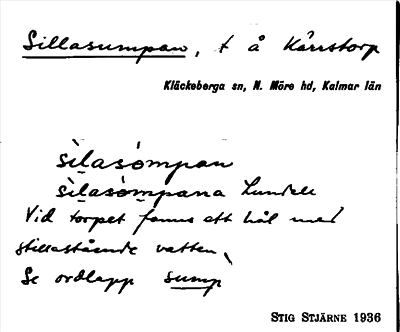 Sillasumpan, t å Kårstorp
Kläckeberga sn, N. Möre hd, Kalmar län
sìlasòmpan
sìlasòmpana Lundell
Vid torpet fanns ett hål med
stillastående vatten,
Se ordlapp sump
STIG STJÄRNE 1936